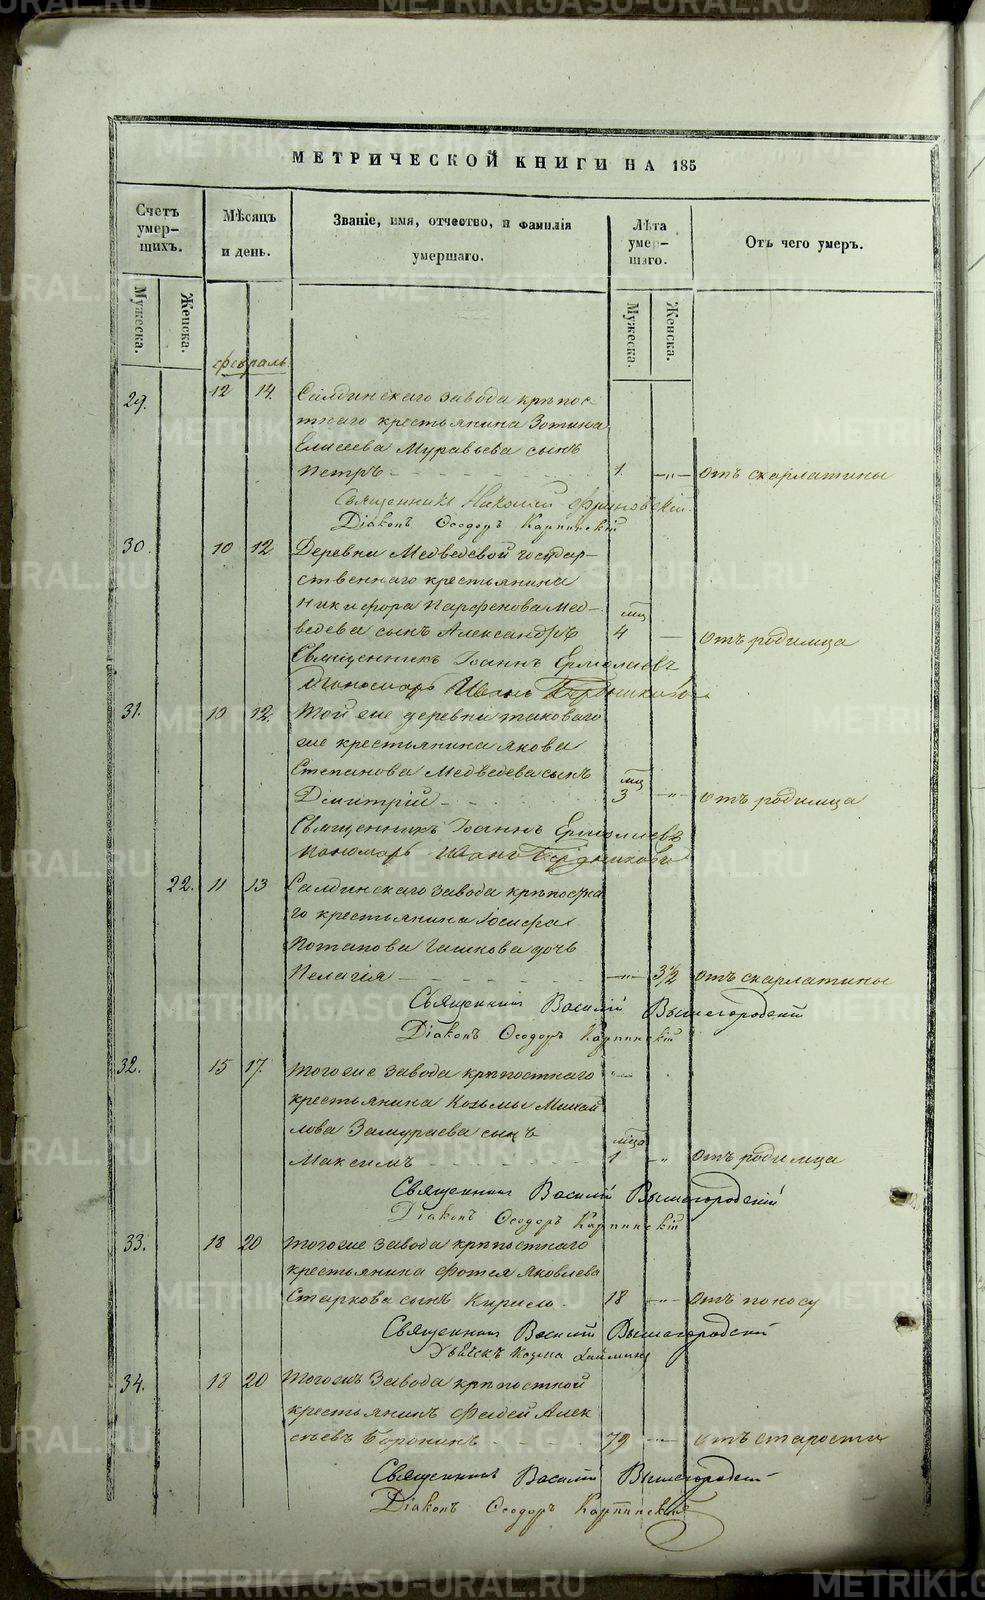 МЕТРИЧЕСКОЙ КНИГИ НА 185
Счетъ умер-шихъ.
Мѣсяцъ и день.
Званіе, имя, отчество, и фамилія умершаго.
Лѣта умер-шаго.
Отъ чего умеръ.
Мужеска.
Женска.
Мужеска.
Женска.
февраль
29. 12 14. Салдинскаго завода крѣпос-
тнаго крестьянина Зотика
Елисеева Муравьева сынъ
Петръ 1. -"- отъ скарлатины
Священникъ Николай
Діаконъ Ѳеодоръ Карпинскій
30. 10 12 Деревни Медведевой государ-
ственнаго крестьянина
Никифора Парфенова Мед-
мца
ведева сынъ Александръ 4 — отъ родимца
Священникъ Іоаннъ Ермолаевъ
Пономарь Иванъ Бердниковъ
31. 10 12. Той же деревни таковаго
же крестьянина Якова
Степанова Медведева сынъ
мца
Димитрій 3 -"- отъ родимца
Священникъ Іоаннъ Ермолаевъ
Пономарь Иванъ Бердниковъ
22. 11 13 Салдинскаго завода крѣпостна
го крестьянина Іосифа
Потапова Гашкова дочь
Пелагія -"- 3½ отъ скарлатины
Священникъ Василій Вышегородскій
Діаконъ Ѳеодоръ Карпинскій
32. 15 17. Тогоже завода крѣпостнаго
крестьянина Козьмы Михай
лова Замураева сынъ
мца
Максимъ 1 -"- отъ родимца
Священникъ Василій Вышегородскій
Діаконъ Ѳеодоръ Карпинскій
33. 18 20 Тогоже завода крѣпостнаго
крестьянина Фотея Яковлева
Старкова сынъ Кирило 18 -"- отъ поносу
Священникъ Василій Вышегородскій
Козма
34. 18 20 Тогожъ завода крѣпостной
крестьянинъ Фадей Алек
сѣевъ Воронинъ 79 -"- отъ старости
Священникъ Василій Вышегородскій
Діаконъ Ѳеодоръ Карпинскій
METRIKI.GASO-URAL.RU